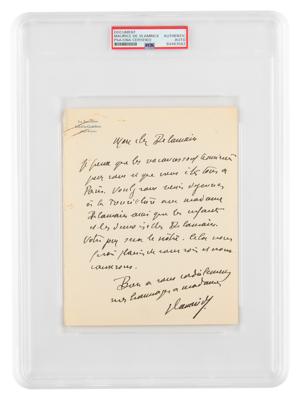 DOCUMENT
MAURICE DE VLAMINCK
PSA/DNA CERTIFIED
AUTHENTIC
AUTO
PSA
Mon cher Delamain
Je pense que les vacances sont terminées
pour vous et que vous êtes tous à
Paris. Voulez vous venir déjeuner
à la Tourillière avec madame
Delamain ainsi que les enfants
et les Delamain.
Votre jour sera le nôtre. Cela nous
fera plaisir de vous voir et nous
causerons.
Bien à vous cordialement
mes hommages à madame
Vlaminck